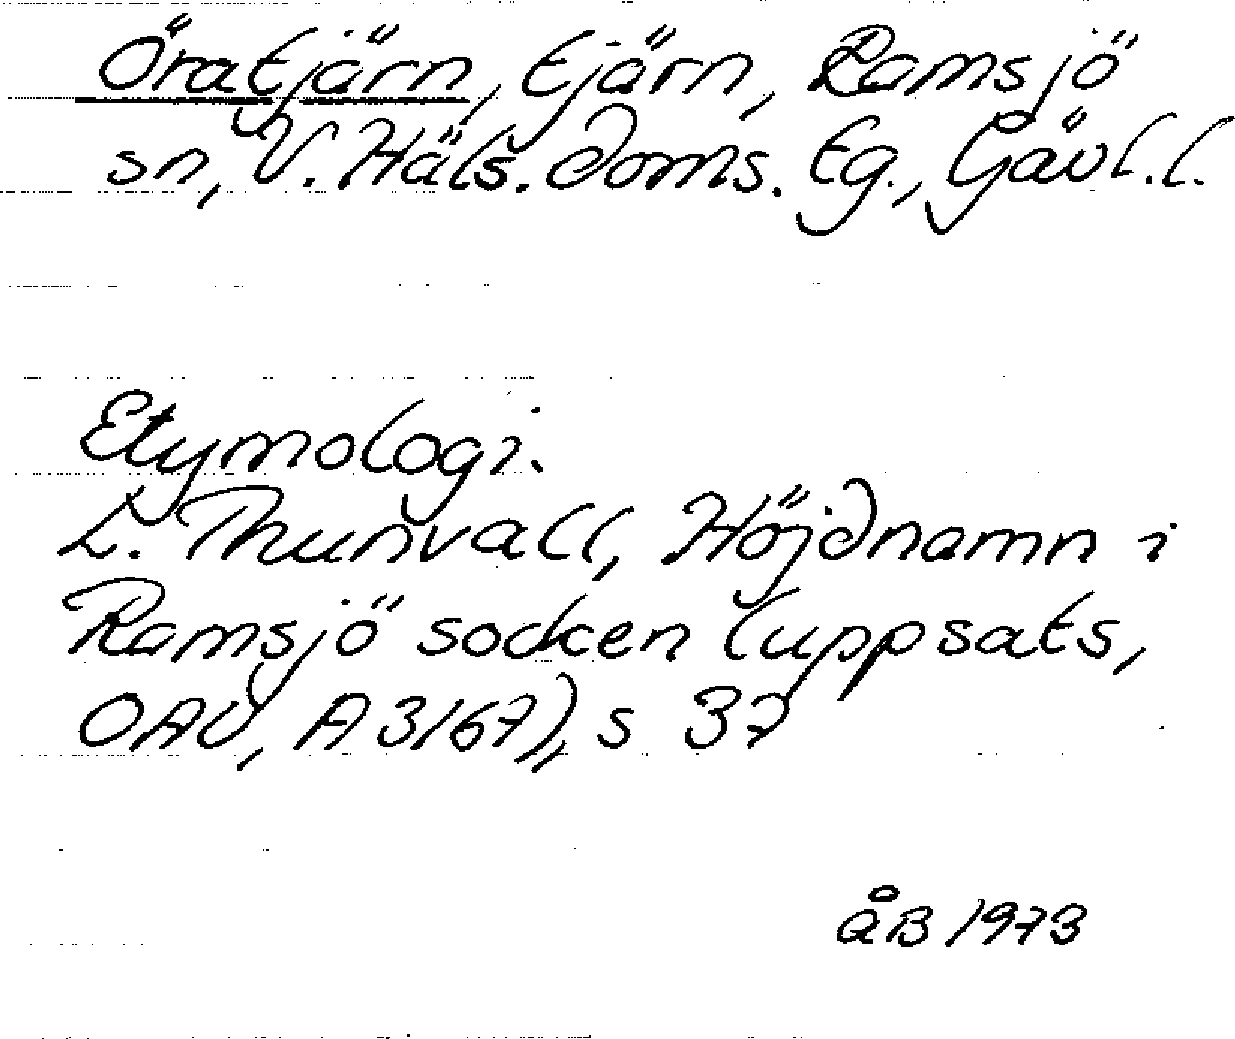 Öratjärn, tjärn, Ramsjö
sn, V. Häls. doms. tg., Gävl. l.
Etymologi.
L. Thunvall, Höjdnamn i
Ramsjö socken (uppsats,
OAU, A 3167), s 37
åB 1973